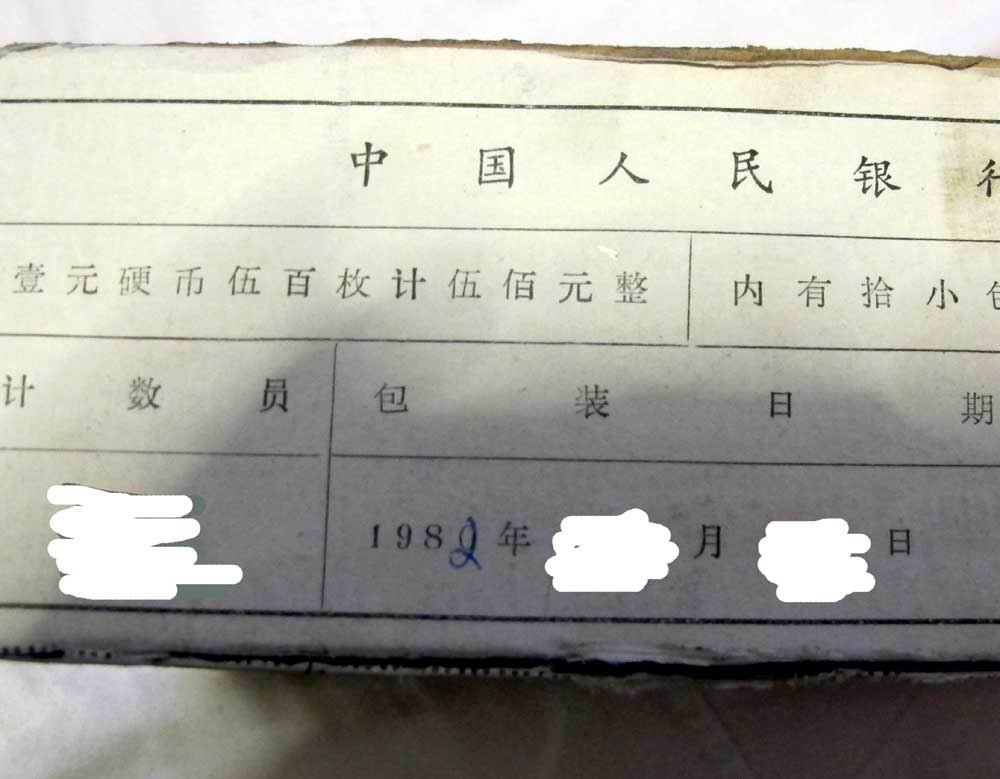 中国人民银行
壹元硬币伍百枚计伍佰元整 内有拾小包
计数员 包装日期
1982年 月 日